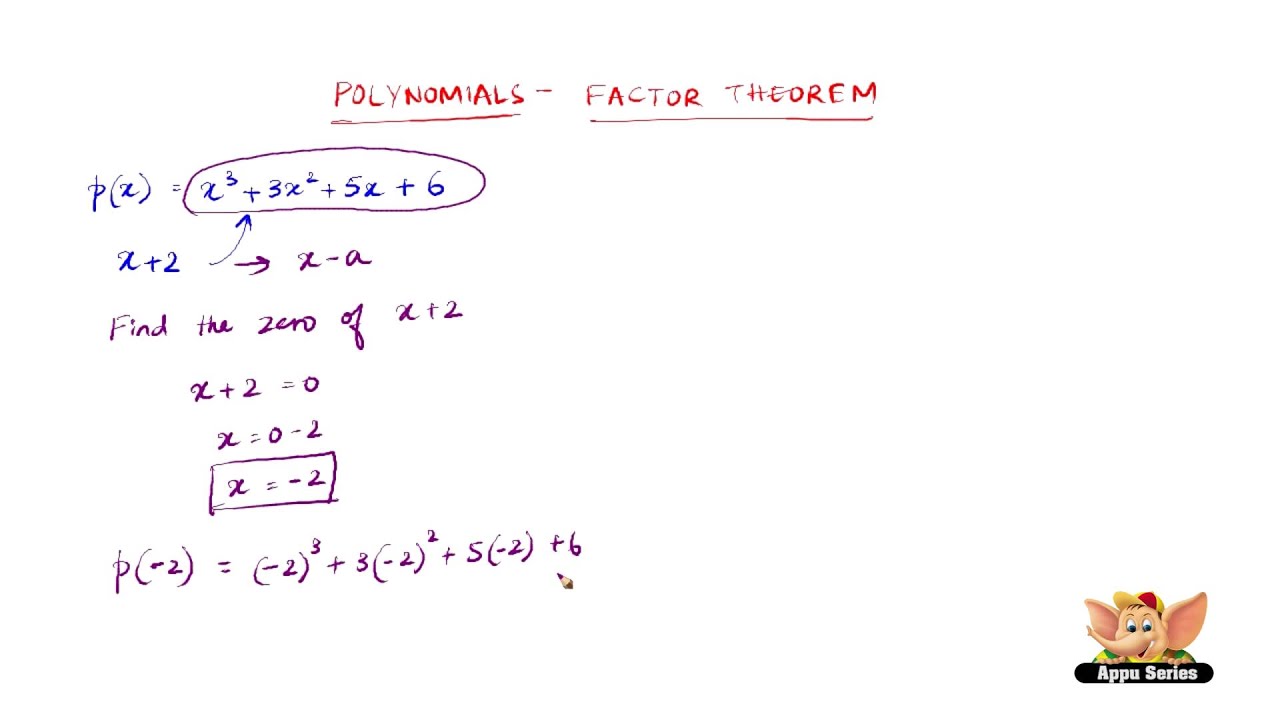 POLYNOMIALS - FACTOR THEOREM
p(x) = x³ + 3x² + 5x + 6
x+2 → x-a
Find the zero of x+2
x+2 = 0
x = 0-2
x = -2
p(-2) = (-2)³ + 3(-2)² + 5(-2) +6
Appu Series